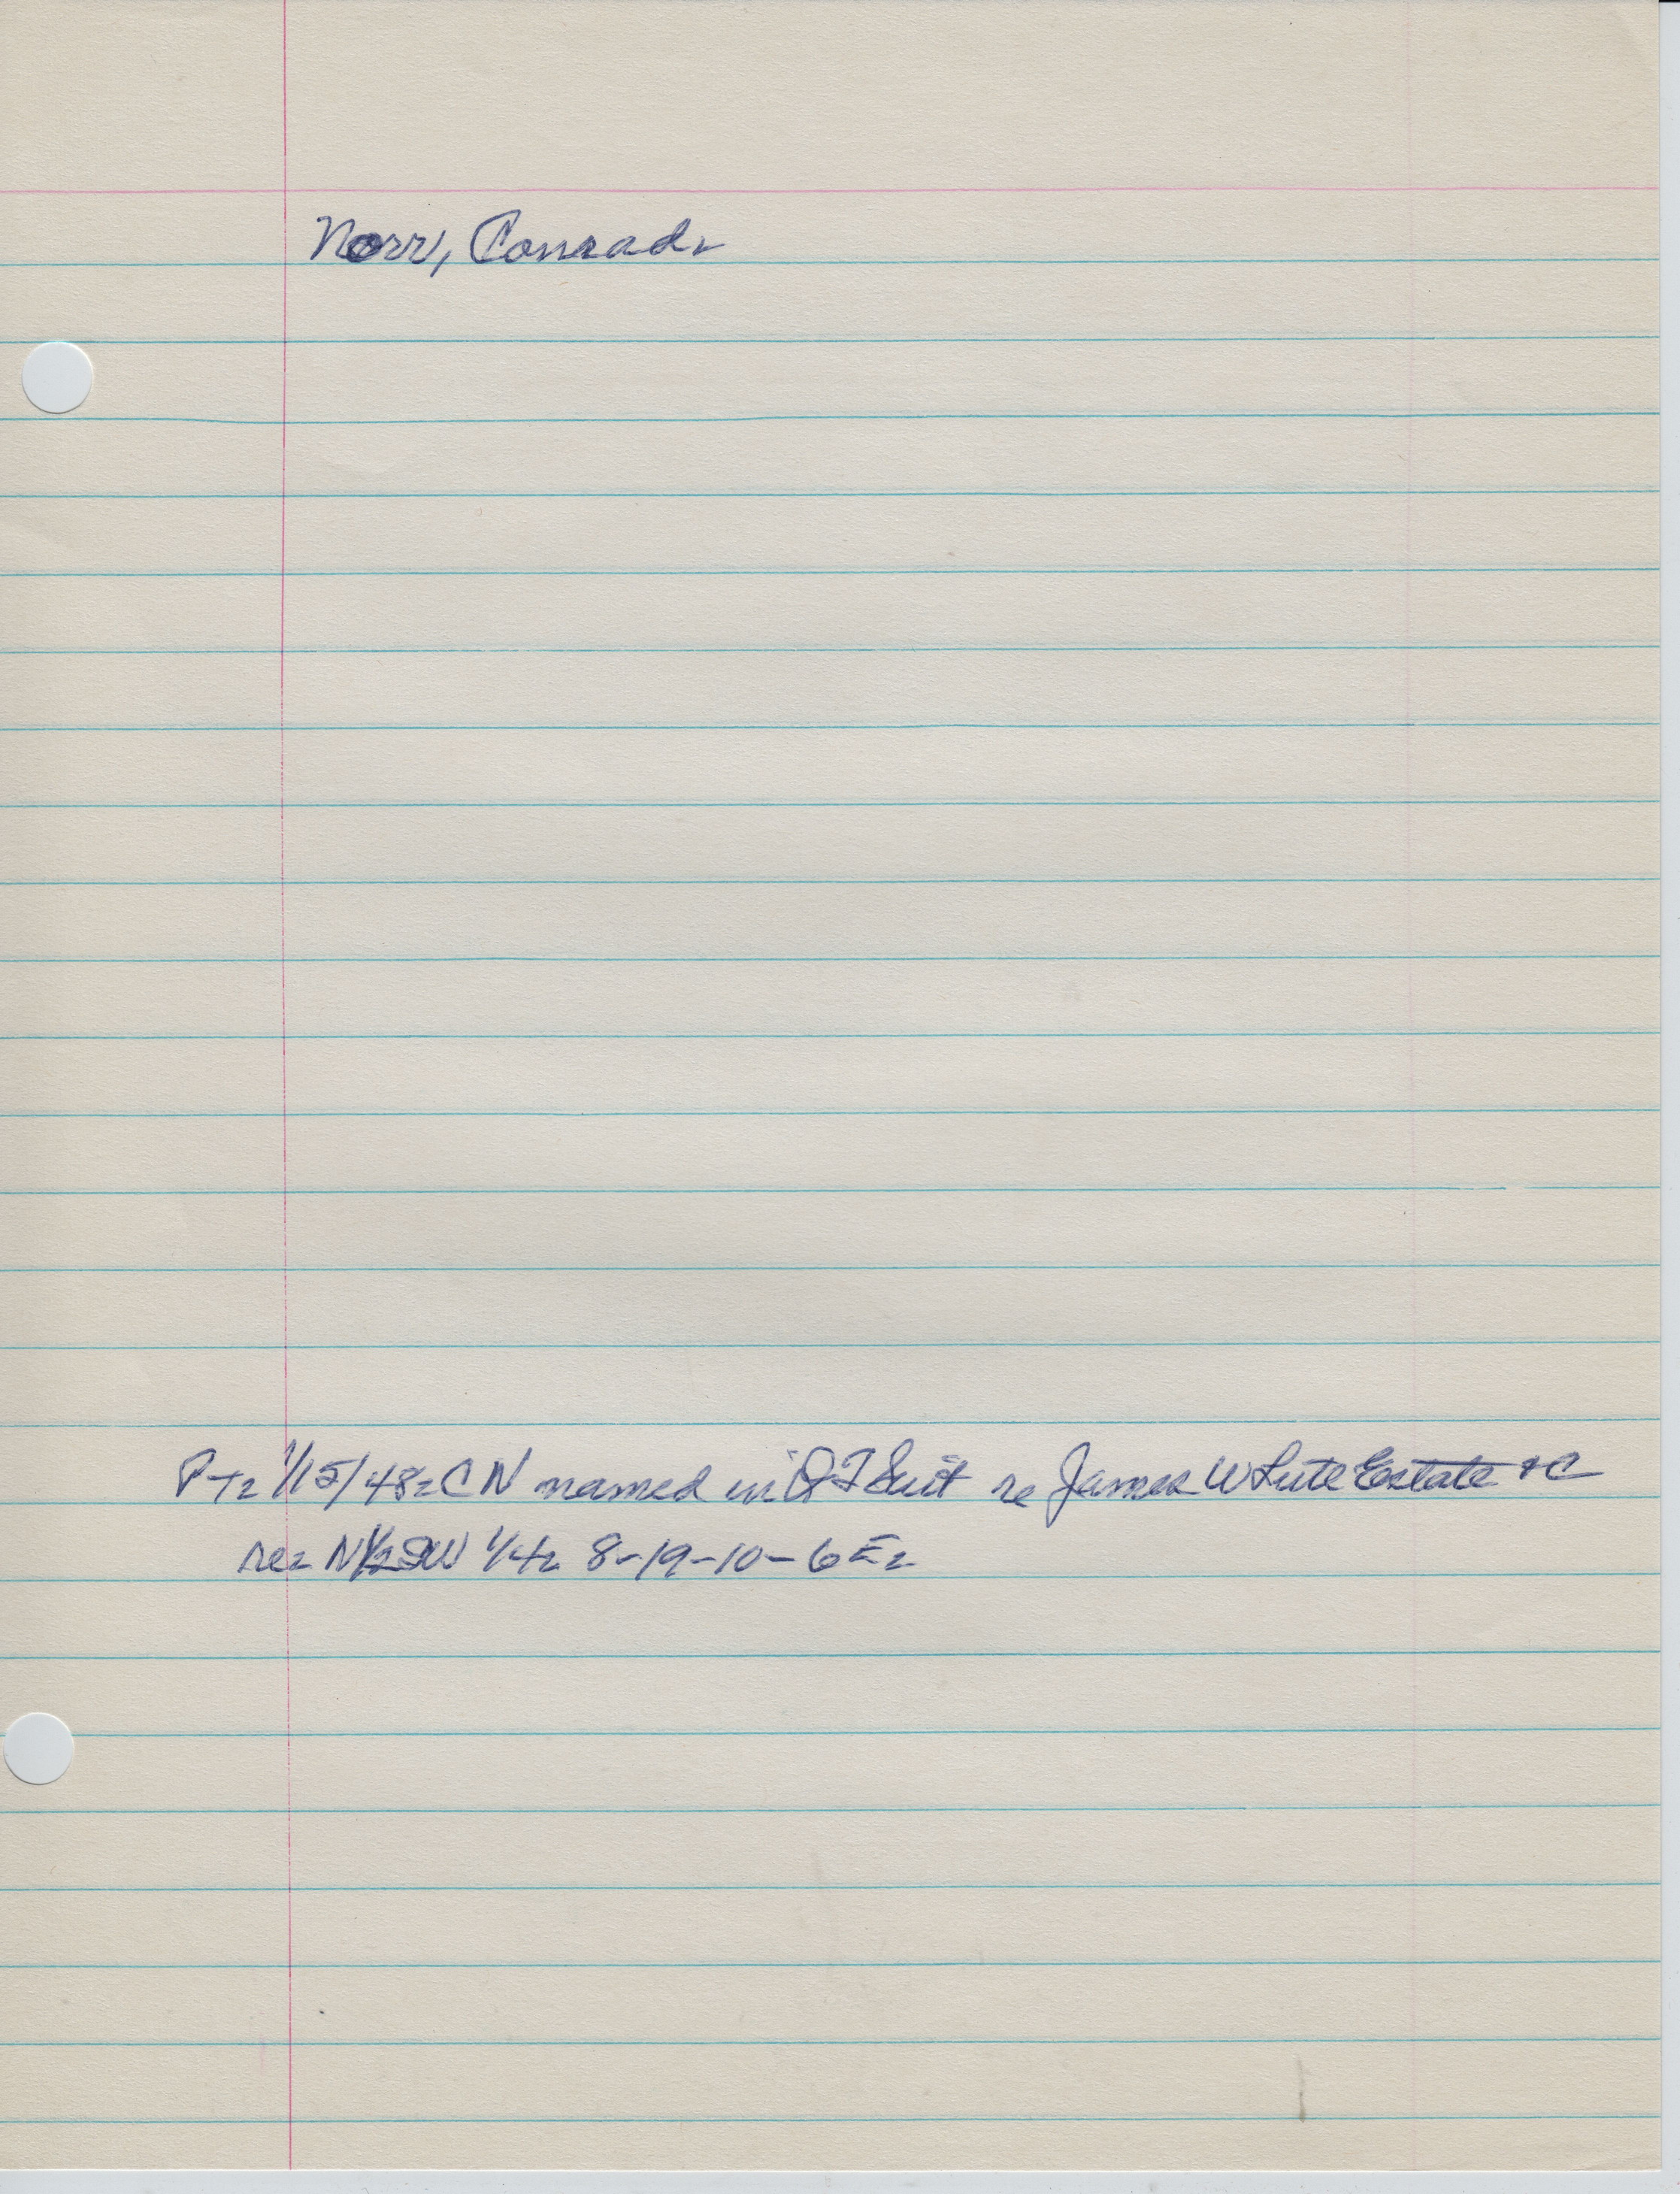 Norr, Conrad.
P-T. 1/15/48. C N named in Q T Suit re James W Lute Estate + C
re. N 1/2 SW 1/4. 8-19-10-6E.